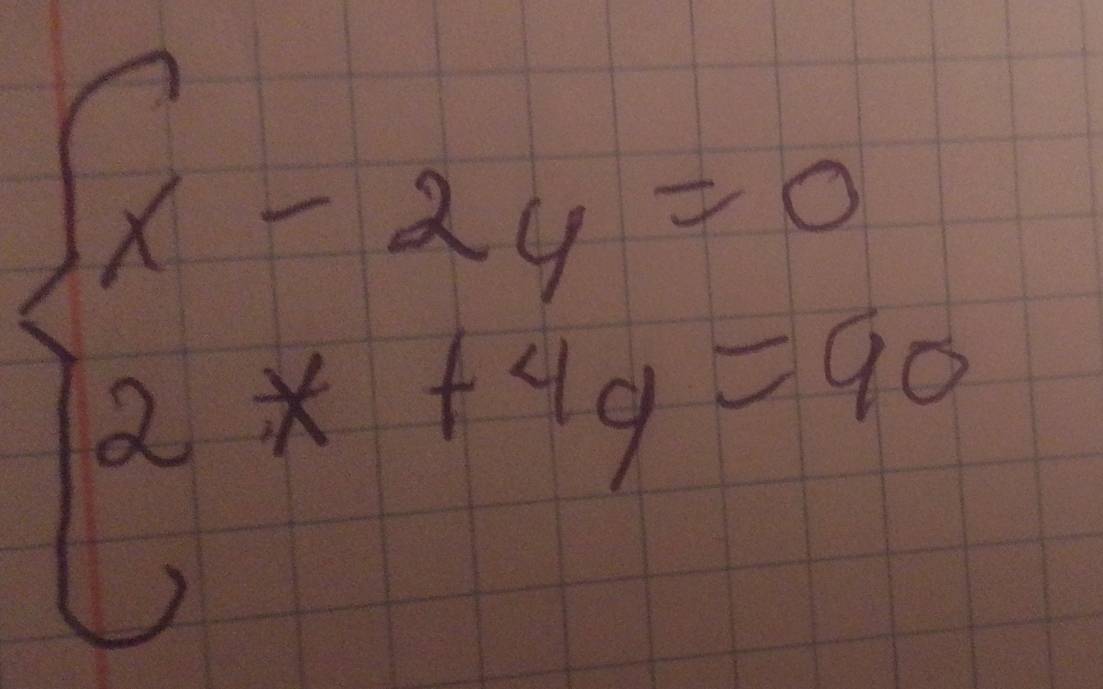 x - 2y = 0
2x + 4y = 90